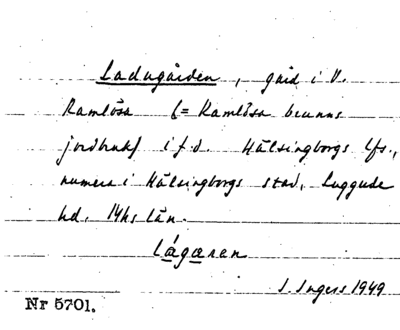 Ladugården, gård i V.
Ramlösa (= Ramlösa brunns
jordbruk) i f.d. Hälsingborgs lfs.,
numera i Hälsingborgs stad, Luggude
hd. Mhs län.
lágæren
I. Ingers 1949
Nr 5701.